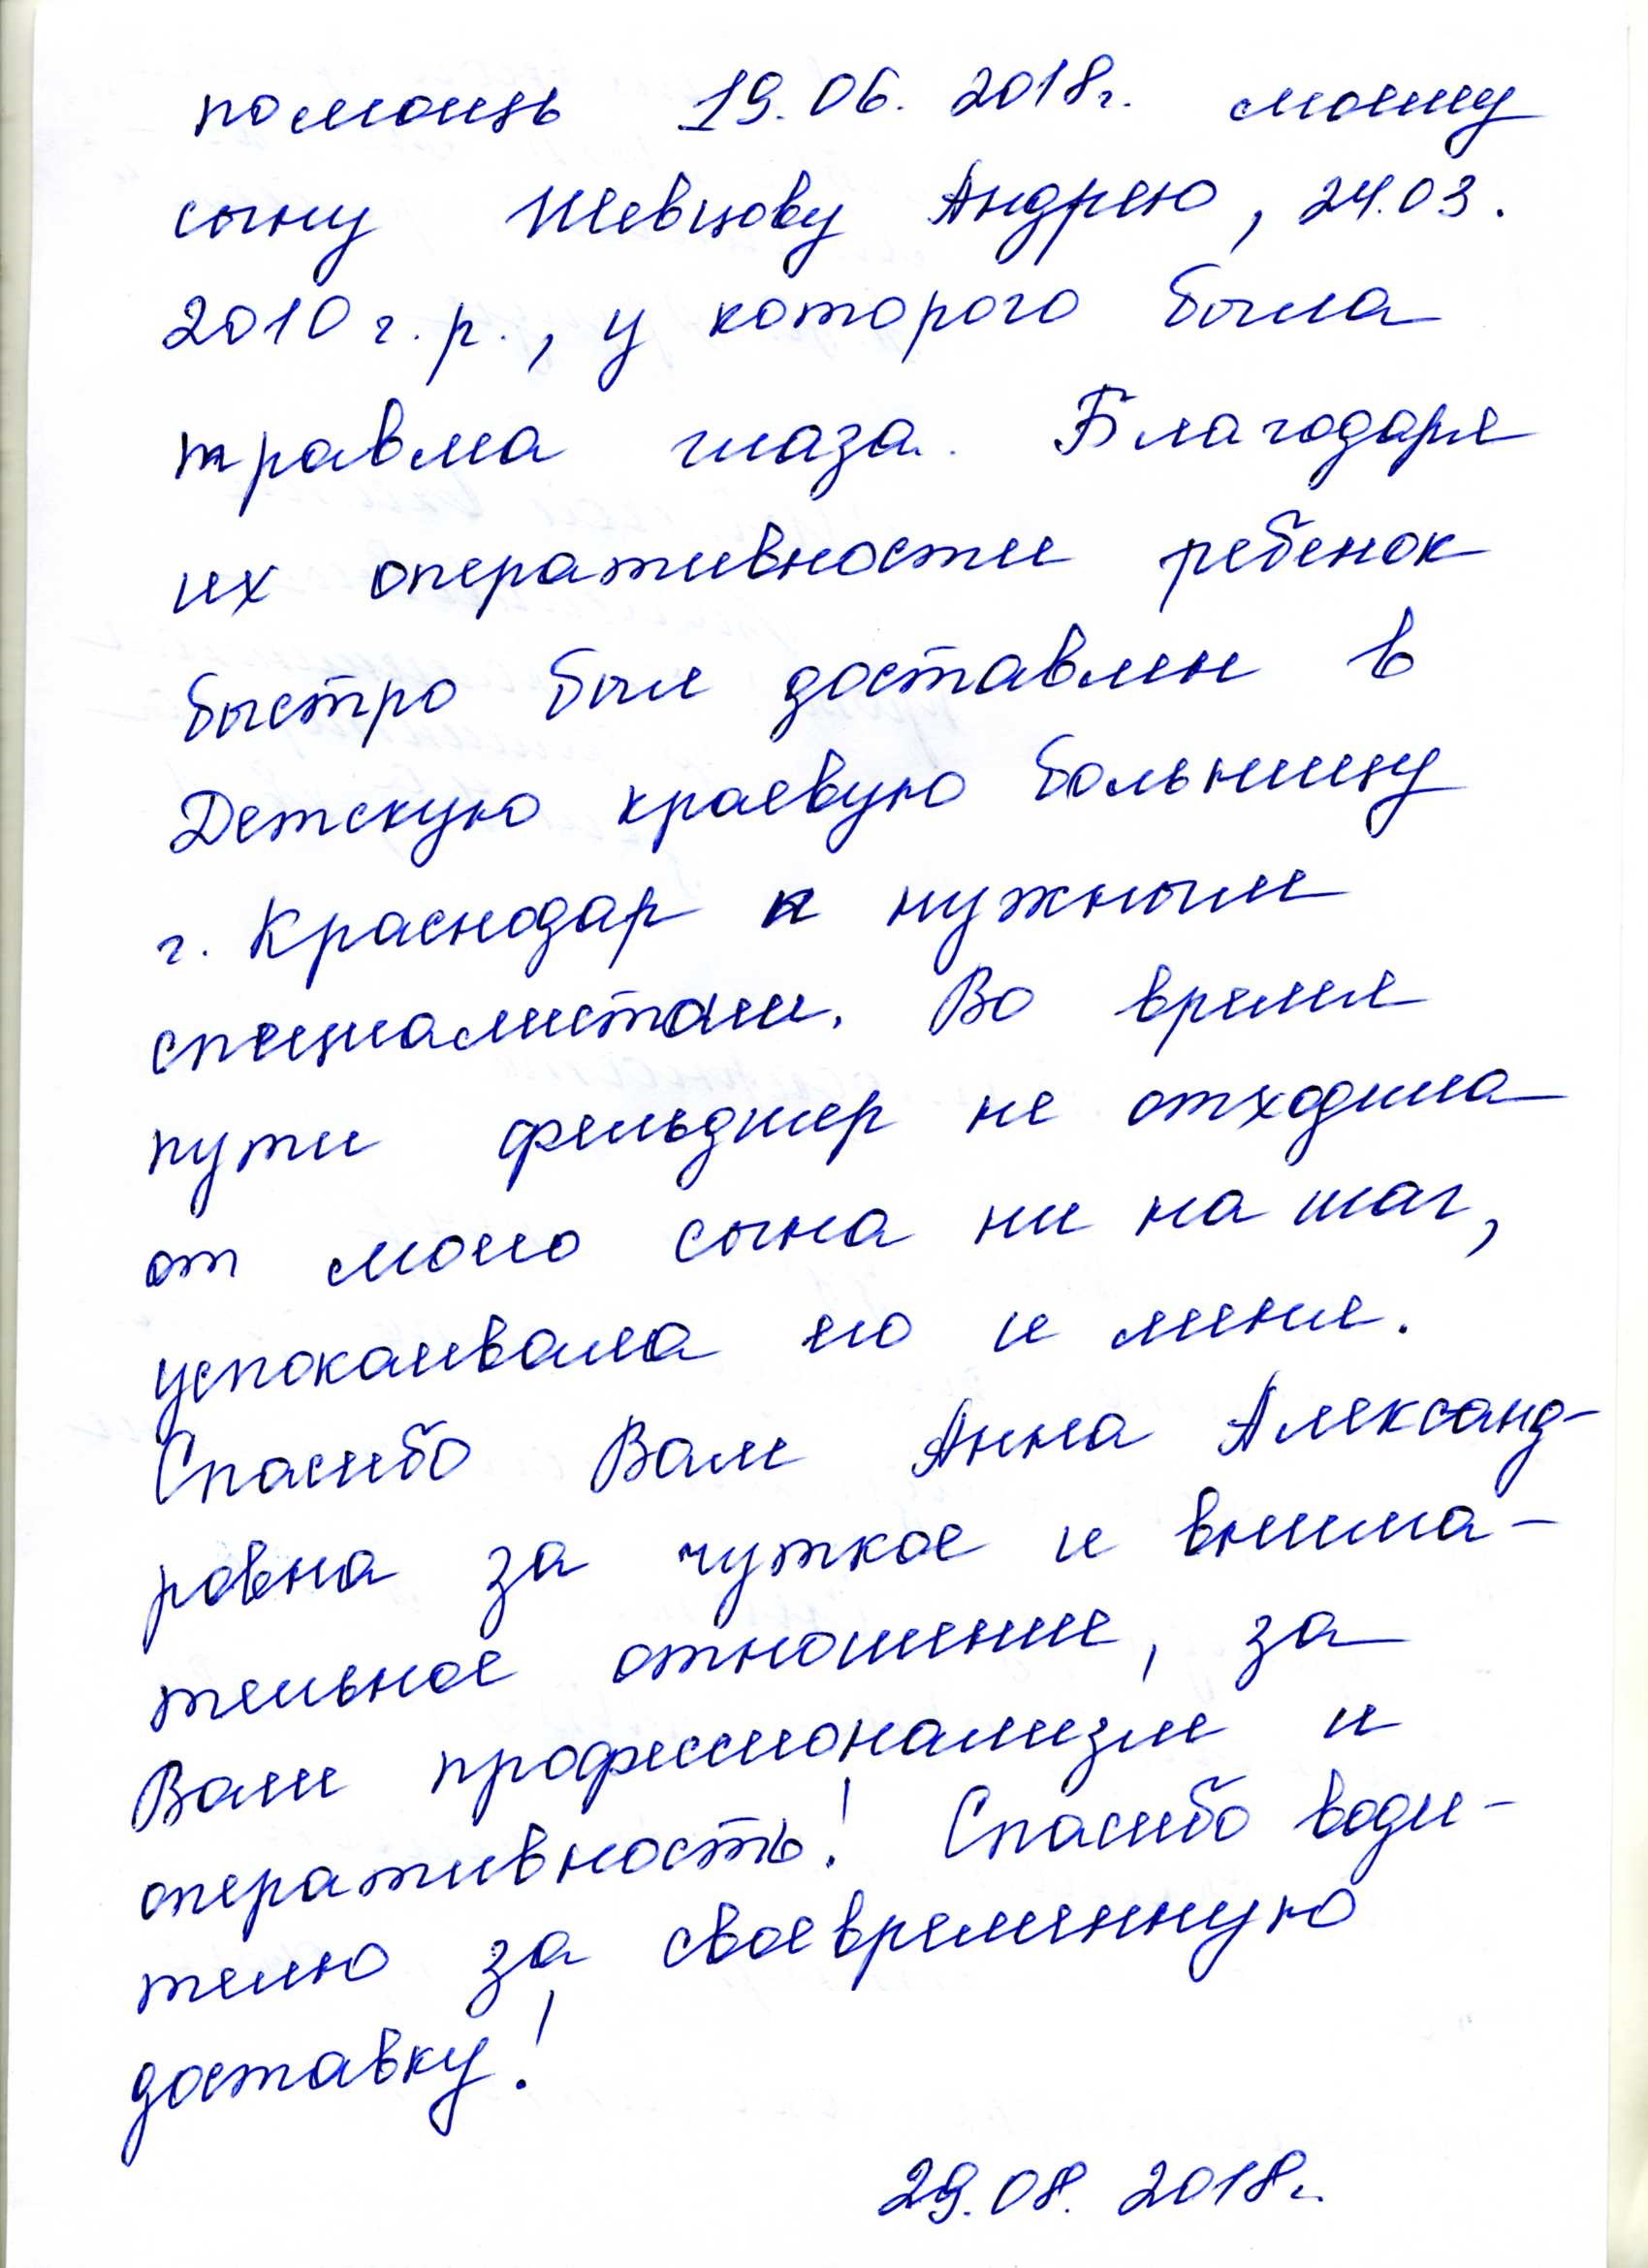 помощь 19.06.2018г. моему
сыну Шевцову Андрею, 24.03.
2010 г.р., у которого была
травма глаза. Благодаря
их оперативности ребенок
быстро был доставлен в
Детскую краевую больницу
г. Краснодар к нужным
специалистам. Во время
пути фельдшер не отходила
от моего сына ни на шаг,
успокаивала его и меня.
Спасибо Вам Анна Александ-
ровна за чуткое и внима-
тельное отношение, за
Ваш профессионализм и
оперативность! Спасибо води-
телю за своевременную
доставку!
29.08.2018г.